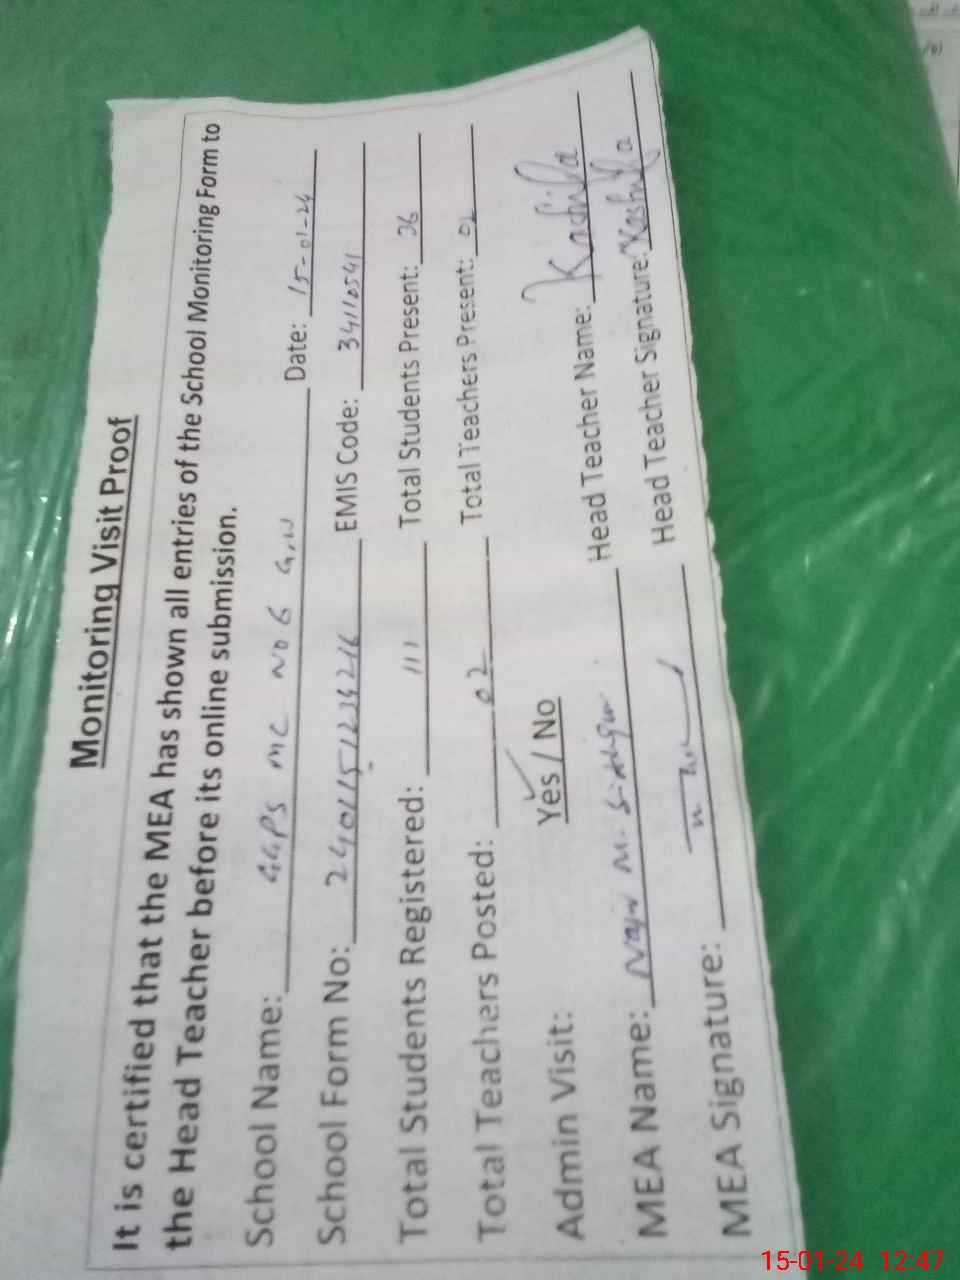 Monitoring Visit Proof
It is certified that the MEA has shown all entries of the School Monitoring Form to
the Head Teacher before its online submission.
School Name: GGPS MC NO 6 G,W Date: 15-01-24
School Form No: 2401151234216 EMIS Code: 34110541
Total Students Registered: 111 Total Students Present: 36
Total Teachers Posted: 02 Total Teachers Present: 02
Admin Visit: Yes / No
MEA Name: M. Head Teacher Name: Kashifa
MEA Signature: Head Teacher Signature: Kashifa
15-01-24 12:47